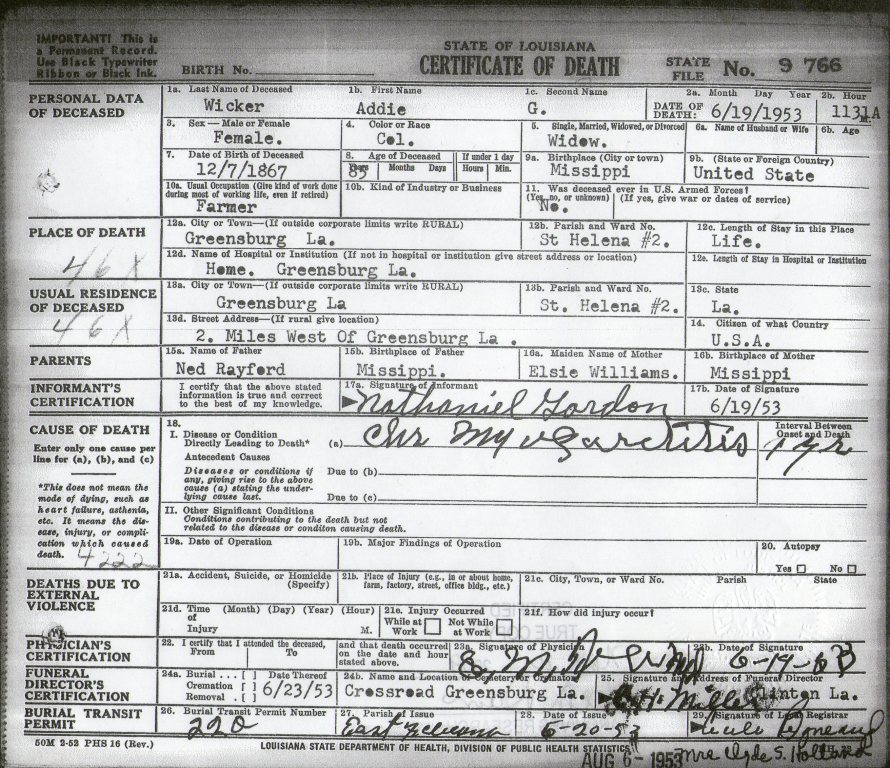 IMPORTANT! This is
a Permanent Record.
Use Black Typewriter
Ribbon or Black Ink.
BIRTH No.
STATE OF LOUISIANA
CERTIFICATE OF DEATH
STATE
FILE No. 9 766
PERSONAL DATA
OF DECEASED
1a. Last Name of Deceased
Wicker
1b. First Name
Addie
1c. Second Name
G.
2a. Month Day Year
DATE OF
DEATH: 6/19/1953
2b. Hour
1131A
3. Sex—Male or Female
Female.
4. Color or Race
Col.
5. Single, Married, Widowed, or Divorced
Widow.
6a. Name of Husband or Wife
6b. Age
7. Date of Birth of Deceased
12/7/1867
8. Age of Deceased
Years Months Days
85
If under 1 day
Hours Min.
9a. Birthplace (City or town)
Missippi
9b. (State or Foreign Country)
United State
10a. Usual Occupation (Give kind of work done
during most of working life, even if retired)
Farmer
10b. Kind of Industry or Business
11. Was deceased ever in U.S. Armed Forces?
(Yes, no, or unknown) (If yes, give war or dates of service)
No.
PLACE OF DEATH
46X
12a. City or Town—(If outside corporate limits write RURAL)
Greensburg La.
12b. Parish and Ward No.
St Helena #2.
12c. Length of Stay in this Place
Life.
12d. Name of Hospital or Institution (If not in hospital or institution give street address or location)
Home. Greensburg La.
12e. Length of Stay in Hospital or Institution
USUAL RESIDENCE
OF DECEASED
46X
13a. City or Town—(If outside corporate limits write RURAL)
Greensburg La
13b. Parish and Ward No.
St. Helena #2.
13c. State
La.
13d. Street Address—(If rural give location)
2. Miles West Of Greensburg La .
14. Citizen of what Country
U.S.A.
PARENTS
15a. Name of Father
Ned Rayford
15b. Birthplace of Father
Missippi.
16a. Maiden Name of Mother
Elsie Williams.
16b. Birthplace of Mother
Missippi
INFORMANT'S
CERTIFICATION
I certify that the above stated
information is true and correct
to the best of my knowledge.
17a. Signature of Informant
Nathaniel Gordon
17b. Date of Signature
6/19/53
CAUSE OF DEATH
Enter only one cause per
line for (a), (b), and (c)
*This does not mean the
mode of dying, such as
heart failure, asthenia,
etc. It means the dis-
ease, injury, or compli-
cation which caused
death.
4222
18.
I. Disease or Condition
Directly Leading to Death* (a) Chr Myocarditis
Interval Between
Onset and Death
1 yr
Antecedent Causes
Diseases or conditions if
any, giving rise to the above
cause (a) stating the under-
lying cause last.
Due to (b)
Due to (c)
II. Other Significant Conditions
Conditions contributing to the death but not
related to the disease or conditon causing death.
19a. Date of Operation
19b. Major Findings of Operation
20. Autopsy
Yes No
DEATHS DUE TO
EXTERNAL
VIOLENCE
21a. Accident, Suicide, or Homicide
(Specify)
21b. Place of Injury (e.g., in or about home,
farm, factory, street, office bldg., etc.)
21c. City, Town, or Ward No. Parish State
21d. Time (Month) (Day) (Year) (Hour)
of
Injury M.
21e. Injury Occurred
While at Work Not While at Work
21f. How did injury occur?
PHYSICIAN'S
CERTIFICATION
22. I certify that I attended the deceased,
From To
and that death occurred
on the date and hour
stated above.
23a. Signature of Physician
23b. Date of Signature
6-19-53
FUNERAL
DIRECTOR'S
CERTIFICATION
24a. Burial ... [ ] Date Thereof
Cremation [ ] 6/23/53
Removal . [ ]
24b. Name and Location of Cemetery or Crematory
Crossroad Greensburg La.
25. Signature and Address of Funeral Director
Miller Clinton La.
BURIAL TRANSIT
PERMIT
26. Burial Transit Permit Number
220
27. Parish of Issue
East Feliciana
28. Date of Issue
6-20-53
29. Signature of Local Registrar
50M 2-52 PHS 16 (Rev.)
LOUISIANA STATE DEPARTMENT OF HEALTH, DIVISION OF PUBLIC HEALTH STATISTICS
AUG 6-1953
Mrs Clyde S. Holland